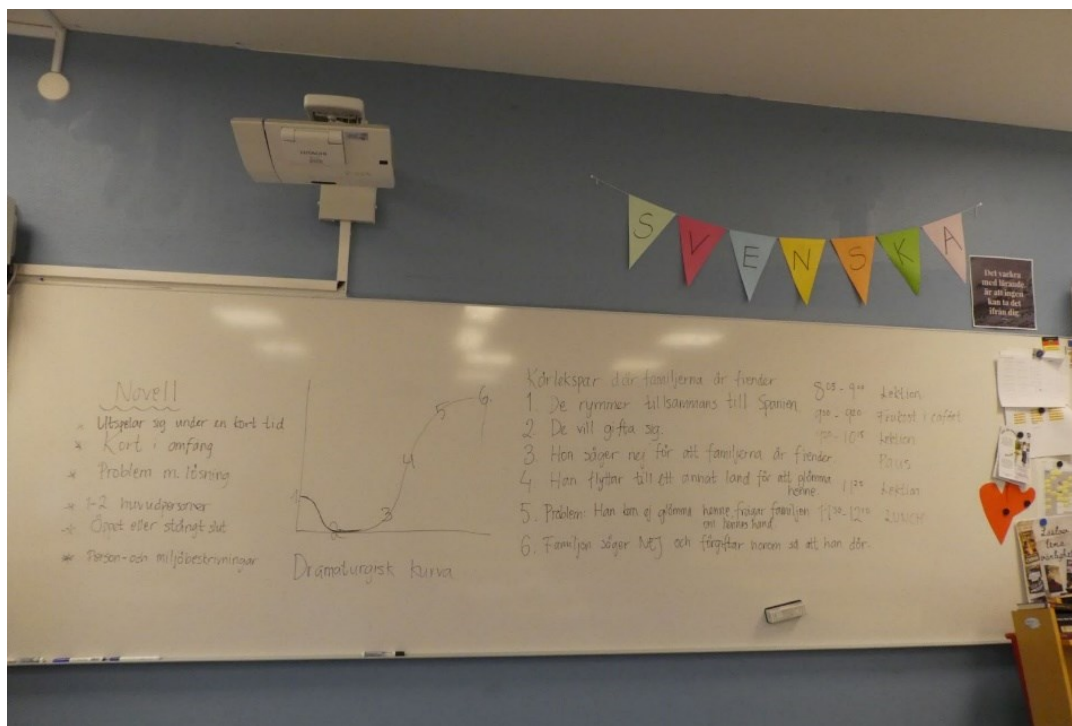 HITACHI
SVENSKA
Det vackra
med lärande
är att ingen
kan ta det
ifrån dig.
Novell
* Utspelar sig under en kort tid
* Kort i omfång
* Problem m. lösning
* 1-2 huvudpersoner
* Öppet eller stängt slut
* Person- och miljöbeskrivningar
1
2
3
4
5
6.
Dramaturgisk kurva
Kärlekspar där familjerna är fiender
1. De rymmer tillsammans till Spanien
2. De vill gifta sig.
3. Hon säger nej för att familjerna är fiender
4 Han flyttar till ett annat land för att glömma
henne.
5. Problem: Han kan ej glömma henne, frågar familjen
om hennes hand
6. Familjen säger NEJ och förgiftar honom så att han dör.
8:05 - 9:00 Lektion
Frukost i caféet
Lektion
Paus
Lektion
LUNCH